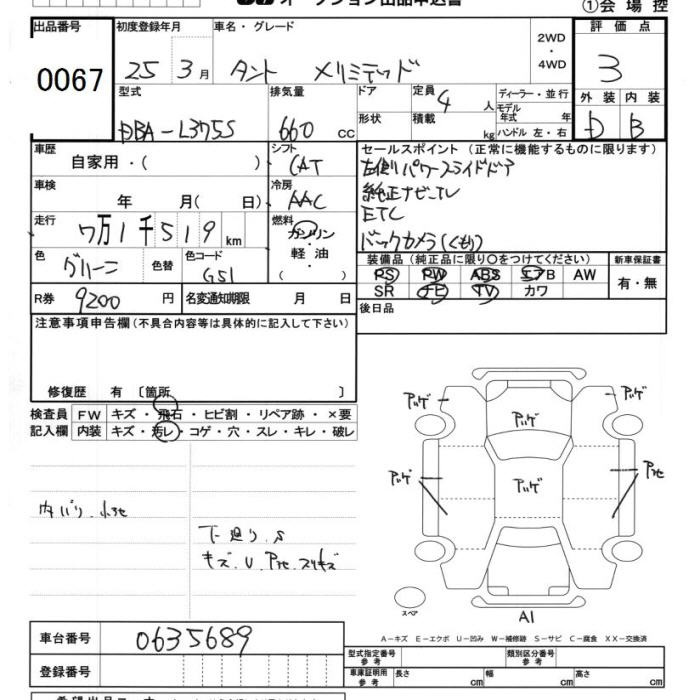 オークション出品申込書
①会場控
出品番号 0067
初度登録年月 25年 3月
車名・グレード タント メリミテッド
2WD・4WD
評価点 3
外装 D 内装 B
型式 DBA-L375S
排気量 660 CC
ドア 形状
定員 4 人
積載 kg
ディーラー・並行
モデル年式 年
ハンドル 左・右
車歴 自家用・( )
シフト CAT
車検 年 月( 日)
冷房 AAC
走行 7万1千519 km
燃料 ガソリン・軽油・( )
色 グリーン 色替 色コード G51
R券 9200 円 名変通知期限 月 日
セールスポイント (正常に機能するものに限ります)
左側パワースライドドア
純正ナビ・TV
ETC
バックカメラ(くもり)
装備品(純正品に限り○をつけてください) 新車保証書
PS PW ABS エアB AW 有・無
SR ナビ TV カワ
後日品
注意事項申告欄(不具合内容等は具体的に記入して下さい)
修復歴 有 〔箇所 〕
検査員 FW キズ・飛石・ヒビ割・リペア跡・×要
記入欄 内装 キズ・汚レ・コゲ・穴・スレ・キレ・破レ
内バリ、小キセ
下廻り、S
キズ、U、Pアセ、スリキズ
アツゲ アツゲ アツゲ
アツゲ アツゲ Pアセ
スペア
A1
A-キズ E-エクボ U-凹み W-補修跡 S-サビ C-腐食 XX-交換済
車台番号 0635689
登録番号
型式指定番号 参考 類別区分番号 参考
車庫証明用 参考 長さ cm 幅 cm 高さ cm